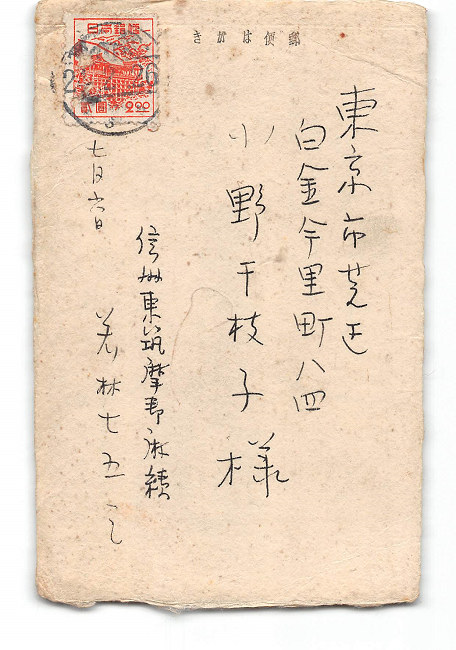 郵便はがき
日本郵便
貳圓 2.00
東京市芝区
白金今里町八四
小野千枝子様
信州東筑摩郡麻績
若林七五三
七月六日